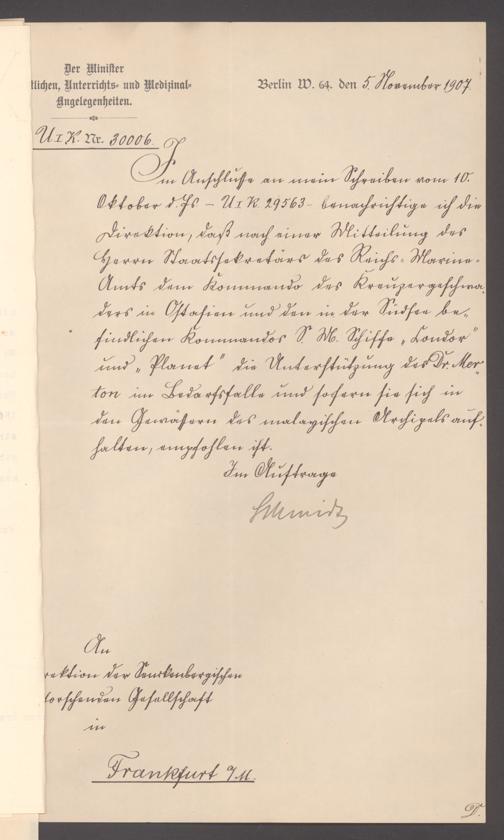 Der Minister
tlichen, Unterrichts- und Medizinal-
Angelegenheiten.
Berlin W. 64. den 5. November 1907.
U I K. Nr. 30006.
Im Anschlusse an mein Schreiben vom 10.
Oktober d. Js - U I K. 29563 - benachrichtige ich die
Direktion, daß nach einer Mitteilung des
Herrn Staatssekretärs des Reichs-Marine-
Amts dem Kommando des Kreuzergeschwa-
ders in Ostasien und den in der Südsee be-
findlichen Kommandos S. M. Schiffe „Condor"
und „Planet" die Unterstützung des Dr. Mer-
ton im Bedarfsfalle und sofern sie sich in
den Gewässern des malayischen Archipels auf-
halten, empfohlen ist.
Im Auftrage
Schmidt
An
rektion der Senckenbergischen
forschenden Gesellschaft
in
Frankfurt a/M.